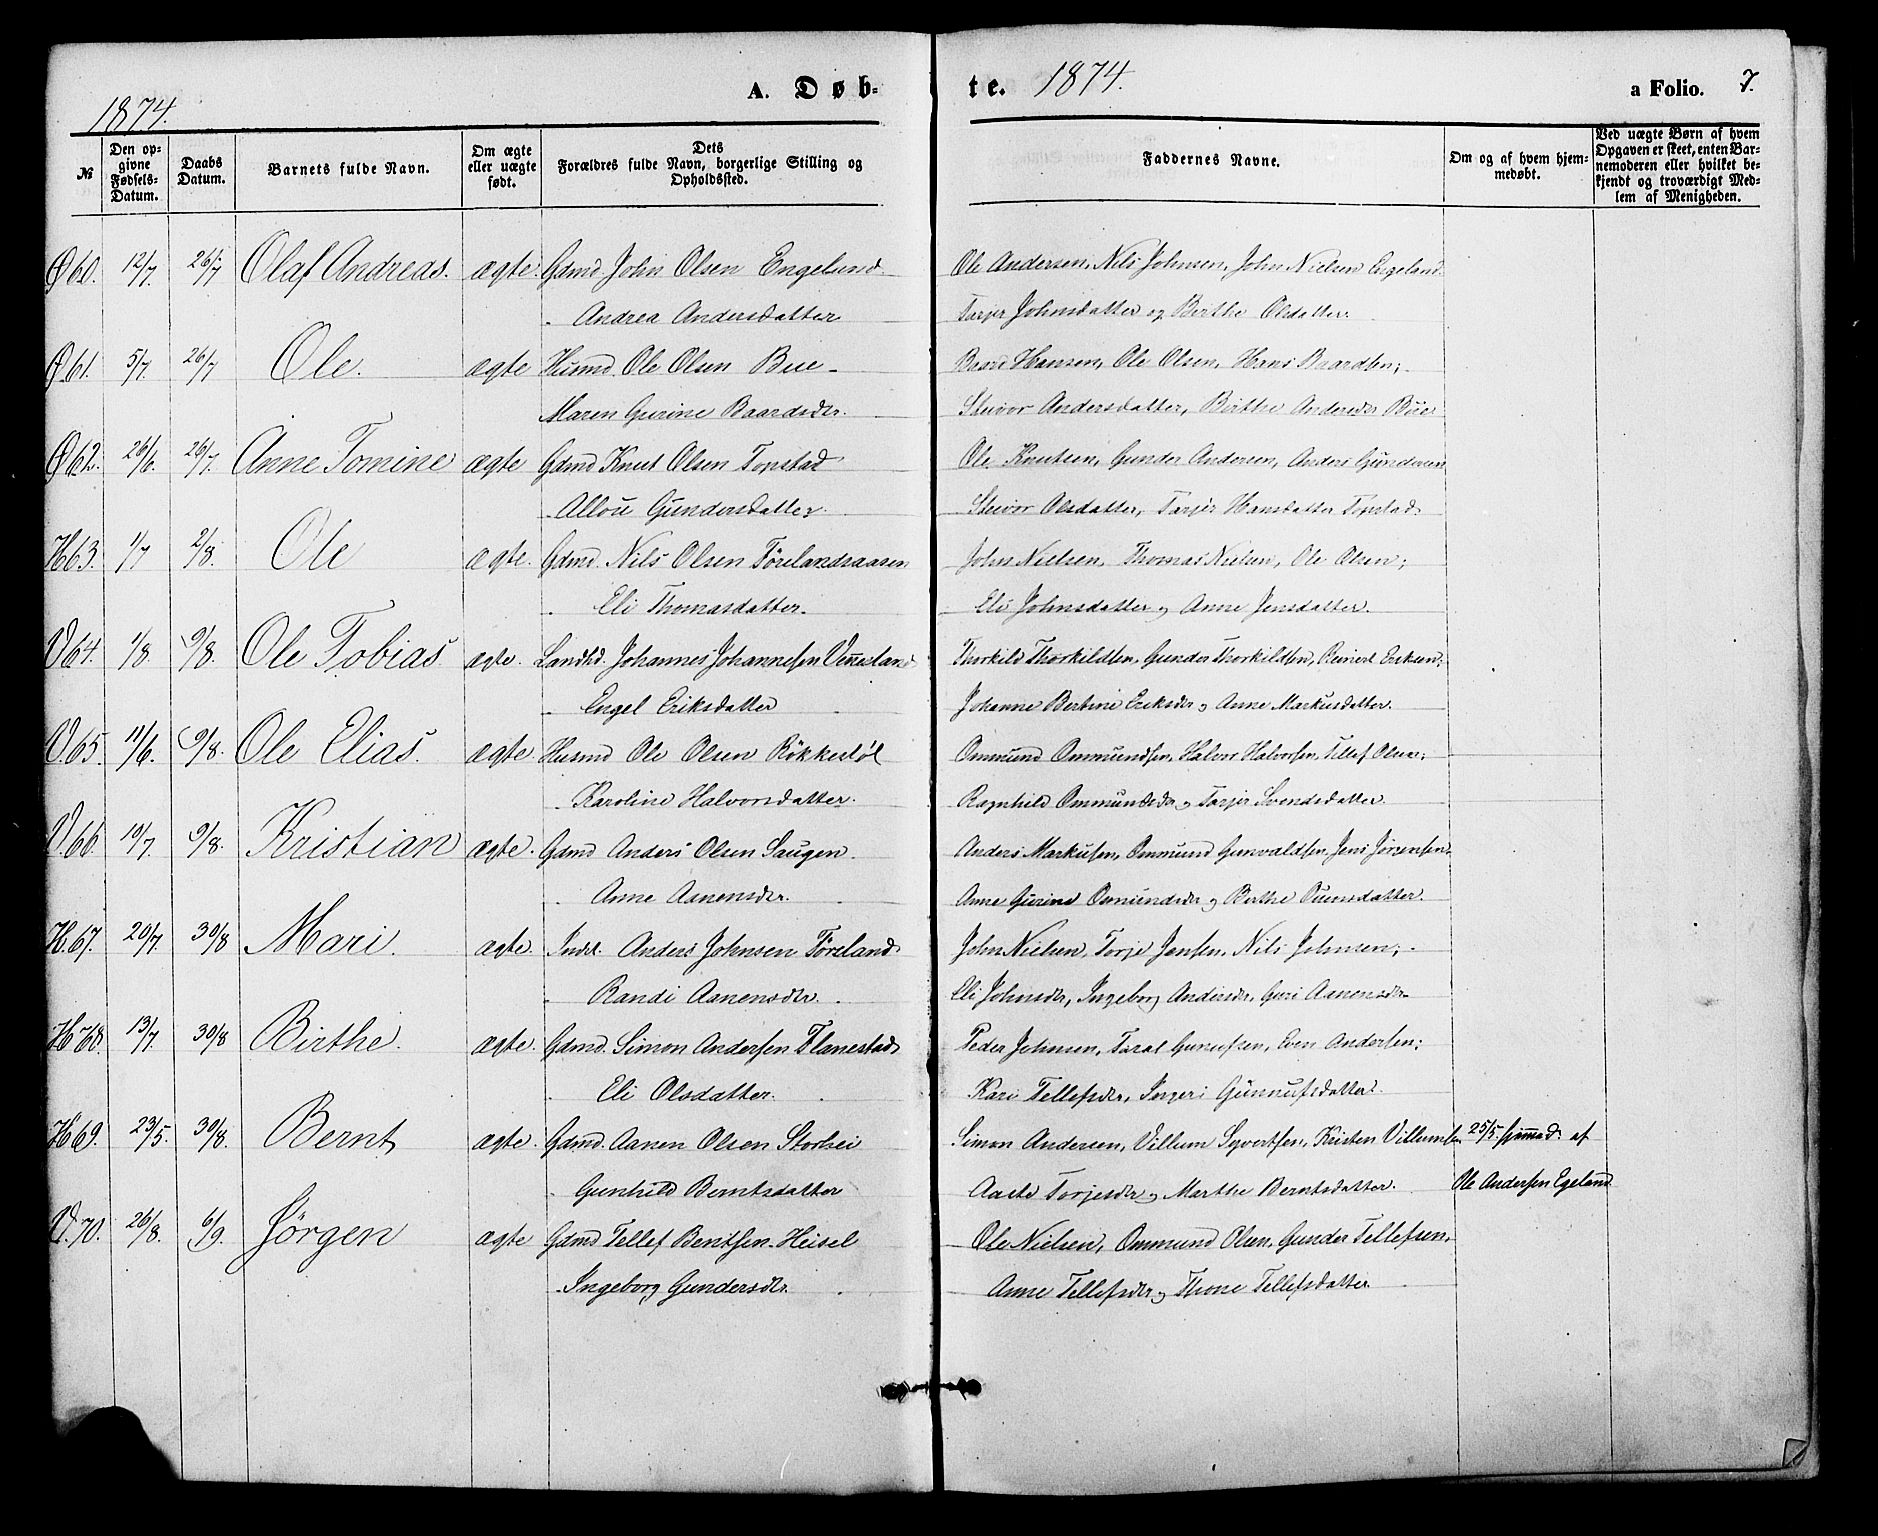 1874.
A. Døb-
te.
1874.
a Folio. 7.
№
Den op-
givne
Fødsels-
Datum.
Daabs
Datum.
Barnets fulde Navn.
Om ægte
eller uægte
født.
Dets
Forældres fulde Navn, borgerlige Stilling og
Opholdssted.
Faddernes Navne.
Om og af hvem hjem-
medøbt.
Ved uægte Børn af hvem
Opgaven er skeet, enten Bar-
nemoderen eller hvilket be-
kjendt og troværdigt Med-
lem af Menigheden.
Ø 60. 12/7. 26/7 Olaf Andreas. ægte. Gdmd John Olsen Engelund Ole Andersen, Nils Johnsen, John Nielsen Engeland
Andrea Andersdatter Tarjer Johnsdatter og Berthe Olsdatter.
Ø 61. 5/7. 26/7 Ole. ægte Husmd. Ole Olsen Bue Baard Hansen, Ole Olsen, Hans Baardsen;
Maren Gurine Baardsdtr. Steivor Andersdatter, Birthe Andersdr Bue
Ø 62. 26/6. 26/7. Anne Tomine ægte Gdmd Knut Olsen Topstad Ole Knutsen, Gunder Andersen, Anders Gundersen
Allou Gundersdatter. Steivor Olsdatter, Tarjer Hansdatter Topstad
H 63. 1/7 2/8. Ole ægte. Gdmd. Nils Olsen Förelandsaasen John Nielsen, Thomas Nielsen, Ole Olsen;
Eli Thomasdatter. Eli Johnsdatter og Anne Jensdatter.
V 64. 1/8. 9/8. Ole Tobias ægte. Landhd. Johannes Johannesen Vennesland Thorkild Thorkildsen, Gunder Thorkildsen, Reinert Eriksen;
Engel Eriksdatter Johanne Bertine Eriksdr og Anne Markusdatter.
V. 65. 11/6. 9/8. Ole Elias. ægte. Husmd Ole Olsen Rökkestöl Ommund Ommundsen, Halvor Halvorsen, Tellef Olsen;
Karoline Halvorsdatter. Ragnhild Ommundsdr og Tarjer Svendsdatter.
V. 66. 19/7. 9/8. Kristian ægte. Gdmd Anders Olsen Saugen. Anders Markusen, Ommund Gunvaldsen, Jens Jörgensen
Anne Aanensdr. Anne Gurine Osmundsdr og Berthe datter.
H. 67. 20/7. 30/8 Mari. ægte. Indst. Anders Johnsen Föreland John Nielsen, Torje Jensen, Nils Johnsen;
Randi Aanensdr. Eli Johnsdr, Ingeborg Andersdr, Guri Aanensdr
H 68. 13/7. 30/8 Birthe. ægte. Gdmd. Simon Andersen Flanestad Peder Johnsen, Taral Gunufsen, Even Andersen;
Eli Olsdatter. Kari Tellefsdr, Ingeri Gunnufsdatter.
H 69. 23/5. 30/8. Bernt ægte. Gdmd. Aanen Olsen Storhei Simon Andersen, Villum Syvertsen, Kristen Villumsen. 25/5 hjmmed: af
Gunhild Berntsdatter Aaste Torjesdr og Marthe Berntsdatter. Ole Andersen Egeland
V. 70. 26/8. 6/9. Jørgen ægte Gdmd Tellef Bentsen Heisel Ole Nielsen, Ommund Olsen, Gunder Tellefsen,
Ingeborg Gundersdtr. Anne Tellefsdr og Thone Tellefsdatter.